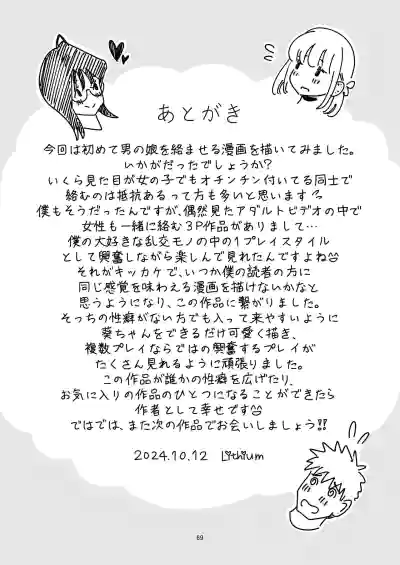 あとがき
今回は初めて男の娘を絡ませる漫画を描いてみました。
いかがだったでしょうか?
いくら見た目が女の子でもオチンチン付いてる同士で
絡むのは抵抗あるって方も多いと思います💦
僕もそうだったんですが、偶然見たアダルトビデオの中で
女性も一緒に絡む3P作品がありまして…
僕の大好きな乱交モノの中の1プレイスタイル
として興奮しながら楽しんで見れたんですよね
それがキッカケで、いつか僕の読者の方に
同じ感覚を味わえる漫画を描けないかなと
思うようになり、この作品に繋がりました。
そっちの性癖がない方でも入って来やすいように
葵ちゃんをできるだけ可愛く描き、
複数プレイならではの興奮するプレイが
たくさん見れるように頑張りました。
この作品が誰かの性癖を広げたり、
お気に入りの作品のひとつになることができたら
作者として幸せです
ではでは、また次の作品でお会いしましょう!!
2024.10.12 Lithium
69